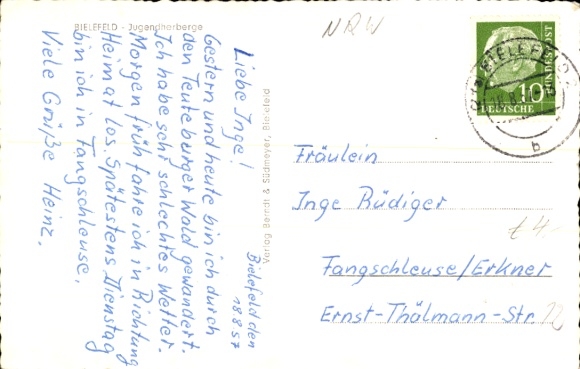 BIELEFELD - Jugendherberge
NRW
Bielefeld den
18.8.57
Liebe Inge!
Gestern und heute bin ich durch
den Teuteburger Wald gewandert.
Ich habe sehr schlechtes Wetter.
Morgen früh fahre ich in Richtung
Heimat los. Spätestens Dienstag
bin ich in Fangschleuse.
Viele Grüße Heinz.
Verlag Berndt & Südmeyer, Bielefeld
BIELEFELD
b
10
DEUTSCHE
BUNDESPOST
Fräulein
Inge Rüdiger
Fangschleuse/Erkner
Ernst-Thälmann-Str. 22